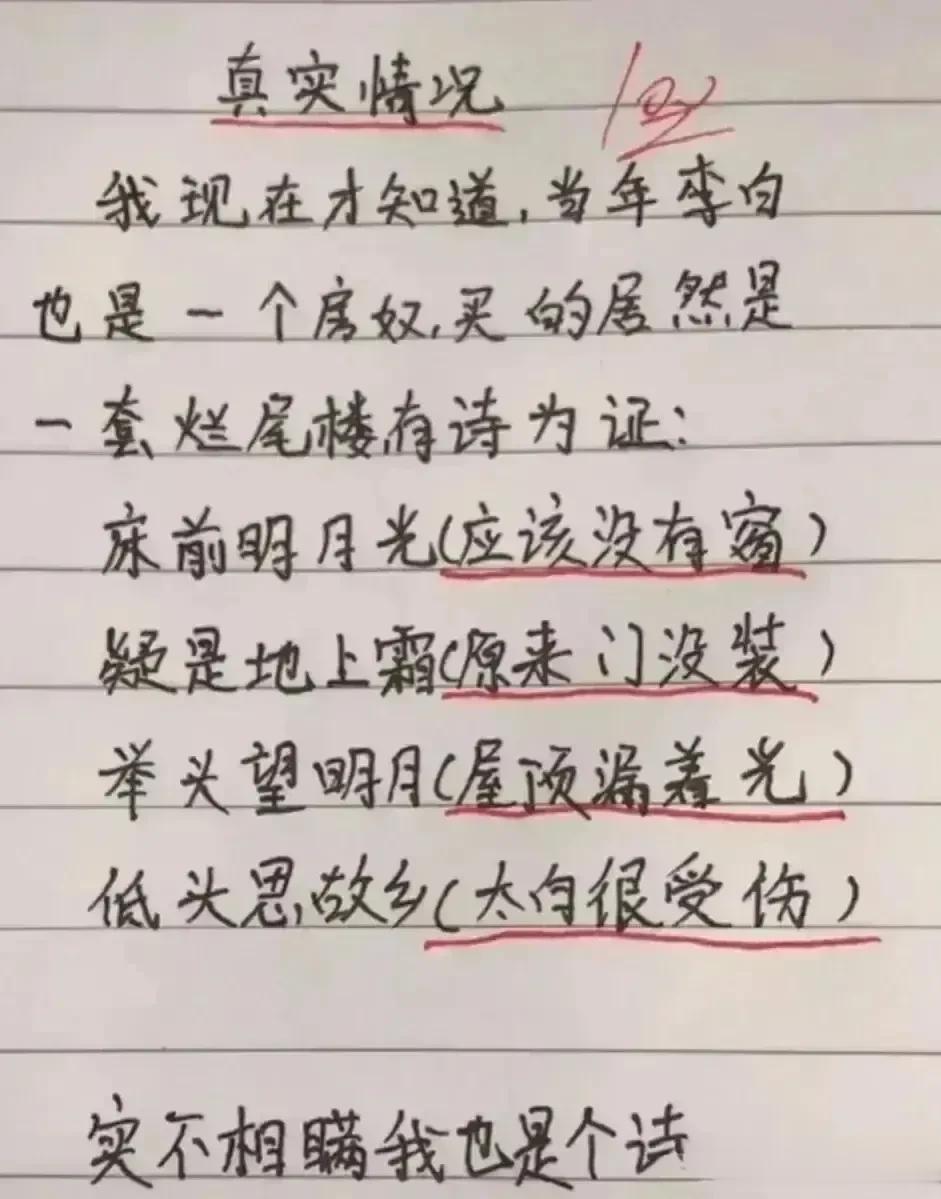 真实情况 100
我现在才知道,当年李白
也是一个房奴,买的居然是
一套烂尾楼,有诗为证:
床前明月光(应该没有窗)
疑是地上霜(原来门没装)
举头望明月(屋顶漏着光)
低头思故乡(太白很受伤)
实不相瞒我也是个诗